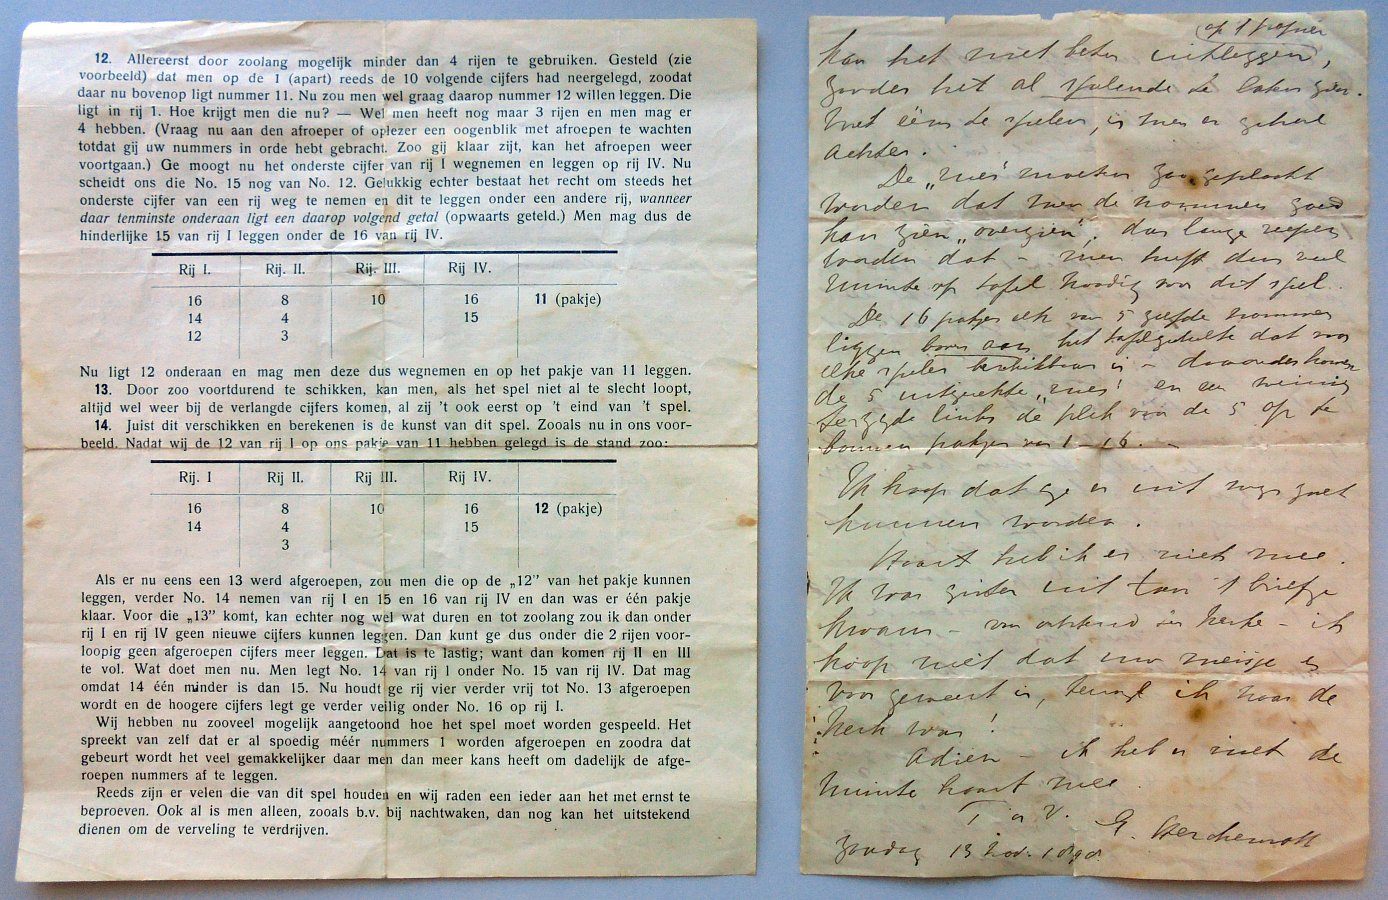 12. Allereerst door zoolang mogelijk minder dan 4 rijen te gebruiken. Gesteld (zie
voorbeeld) dat men op de 1 (apart) reeds de 10 volgende cijfers had neergelegd, zoodat
daar nu bovenop ligt nummer 11. Nu zou men wel graag daarop nummer 12 willen leggen. Die
ligt in rij 1. Hoe krijgt men die nu? — Wel men heeft nog maar 3 rijen en men mag er
4 hebben. (Vraag nu aan den afroeper of oplezer een oogenblik met afroepen te wachten
totdat gij uw nummers in orde hebt gebracht. Zoo gij klaar zijt, kan het afroepen weer
voortgaan.) Ge moogt nu het onderste cijfer van rij I wegnemen en leggen op rij IV. Nu
scheidt ons die No. 15 nog van No. 12. Gelukkig echter bestaat het recht om steeds het
onderste cijfer van een rij weg te nemen en dit te leggen onder een andere rij, wanneer
daar tenminste onderaan ligt een daarop volgend getal (opwaarts geteld.) Men mag dus de
hinderlijke 15 van rij I leggen onder de 16 van rij IV.
Rij I. Rij. II. Rij. III. Rij IV.
16 8 10 16 11 (pakje)
14 4 15
12 3
Nu ligt 12 onderaan en mag men deze dus wegnemen en op het pakje van 11 leggen.
13. Door zoo voortdurend te schikken, kan men, als het spel niet al te slecht loopt,
altijd wel weer bij de verlangde cijfers komen, al zij 't ook eerst op 't eind van 't spel.
14. Juist dit verschikken en berekenen is de kunst van dit spel. Zooals nu in ons voor-
beeld. Nadat wij de 12 van rij I op ons pakje van 11 hebben gelegd is de stand zoo:
Rij. I Rij II. Rij III. Rij IV.
16 8 10 16 12 (pakje)
14 4 15
3
Als er nu eens een 13 werd afgeroepen, zou men die op de „12" van het pakje kunnen
leggen, verder No. 14 nemen van rij I en 15 en 16 van rij IV en dan was er één pakje
klaar. Voor die „13" komt, kan echter nog wel wat duren en tot zoolang zou ik dan onder
rij I en rij IV geen nieuwe cijfers kunnen leggen. Dan kunt ge dus onder die 2 rijen voor-
loopig geen afgeroepen cijfers meer leggen. Dat is te lastig; want dan komen rij II en III
te vol. Wat doet men nu. Men legt No. 14 van rij I onder No. 15 van rij IV. Dat mag
omdat 14 één minder is dan 15. Nu houdt ge rij vier verder vrij tot No. 13 afgeroepen
wordt en de hoogere cijfers legt ge verder veilig onder No. 16 op rij I.
Wij hebben nu zooveel mogelijk aangetoond hoe het spel moet worden gespeeld. Het
spreekt van zelf dat er al spoedig méér nummers 1 worden afgeroepen en zoodra dat
gebeurt wordt het veel gemakkelijker daar men dan meer kans heeft om dadelijk de afge-
roepen nummers af te leggen.
Reeds zijn er velen die van dit spel houden en wij raden een ieder aan het met ernst te
beproeven. Ook al is men alleen, zooals b.v. bij nachtwaken, dan nog kan het uitstekend
dienen om de verveling te verdrijven.
kan het niet beter uitleggen,
zonder het al spelende te laten zien.
Met één de spelen, is men er geheel
achter.
De „rües" moeten zoo geplaatst
worden dat men de nommers goed
kan zien „overzien",
worden dat – men heeft dus veel
ruimte op tafel noodig voor dit spel.
De 16 pakjes elk van 5 zelfde nommers
liggen boven aan het tafelgedeelte dat voor
elke speler beschikbaar is – daaronder komen
de 5 en een weinig
terzijde links de plek voor de 5 op te
bouwen pakjes van 1–16. –
Ik hoop dat ge er uit wijs zult
kunnen worden.
Haast heb ik er niet mee.
Ik was juist uit toen 't briefje
kwam – van in kerk – ik
hoop niet dat uw meisje er
voor geweest is, terwijl ik naar de
kerk was!
Adieu – ik heb er niet de
minste haast mee.
T. à V.
Zondag 13 Nov.